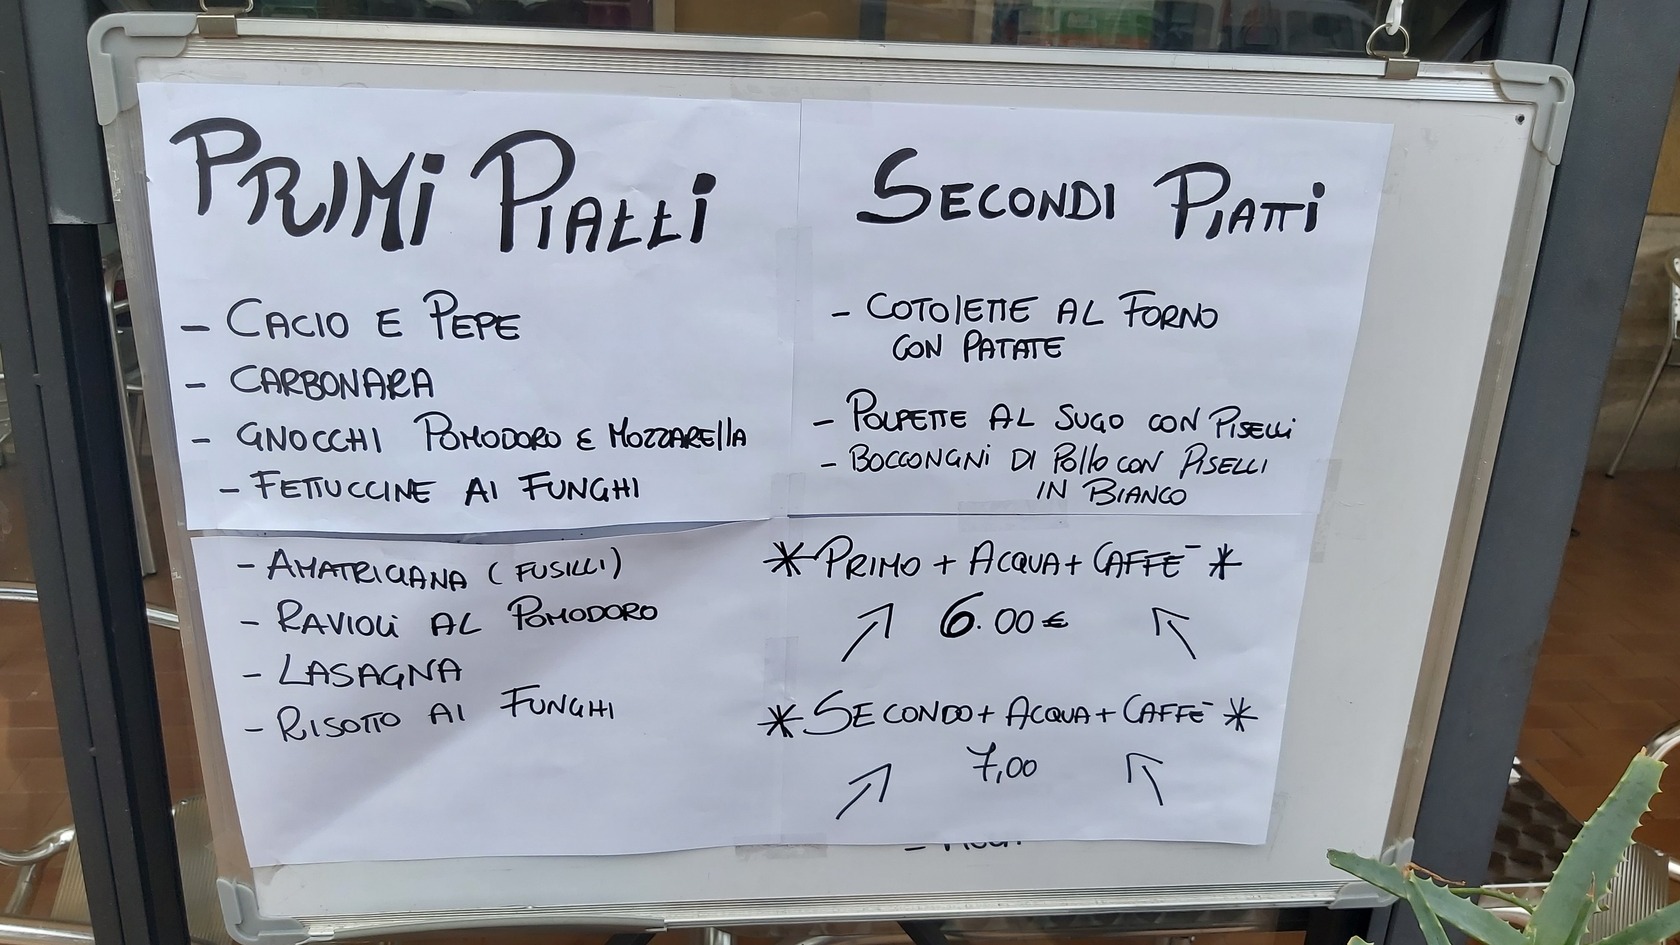 PRIMI PIATTI
- CACIO E PEPE
- CARBONARA
- GNOCCHI POMODORO E MOZZARELLA
- FETTUCCINE AI FUNGHI
- AMATRICIANA (FUSILLI)
- RAVIOLI AL POMODORO
- LASAGNA
- RISOTTO AI FUNGHI
SECONDI PIATTI
- COTOLETTE AL FORNO
CON PATATE
- POLPETTE AL SUGO CON PISELLI
- BOCCONGNI DI POLLO CON PISELLI
IN BIANCO
* PRIMO + ACQUA + CAFFE- *
6.00 €
* SECONDO + ACQUA + CAFFE- *
7,00